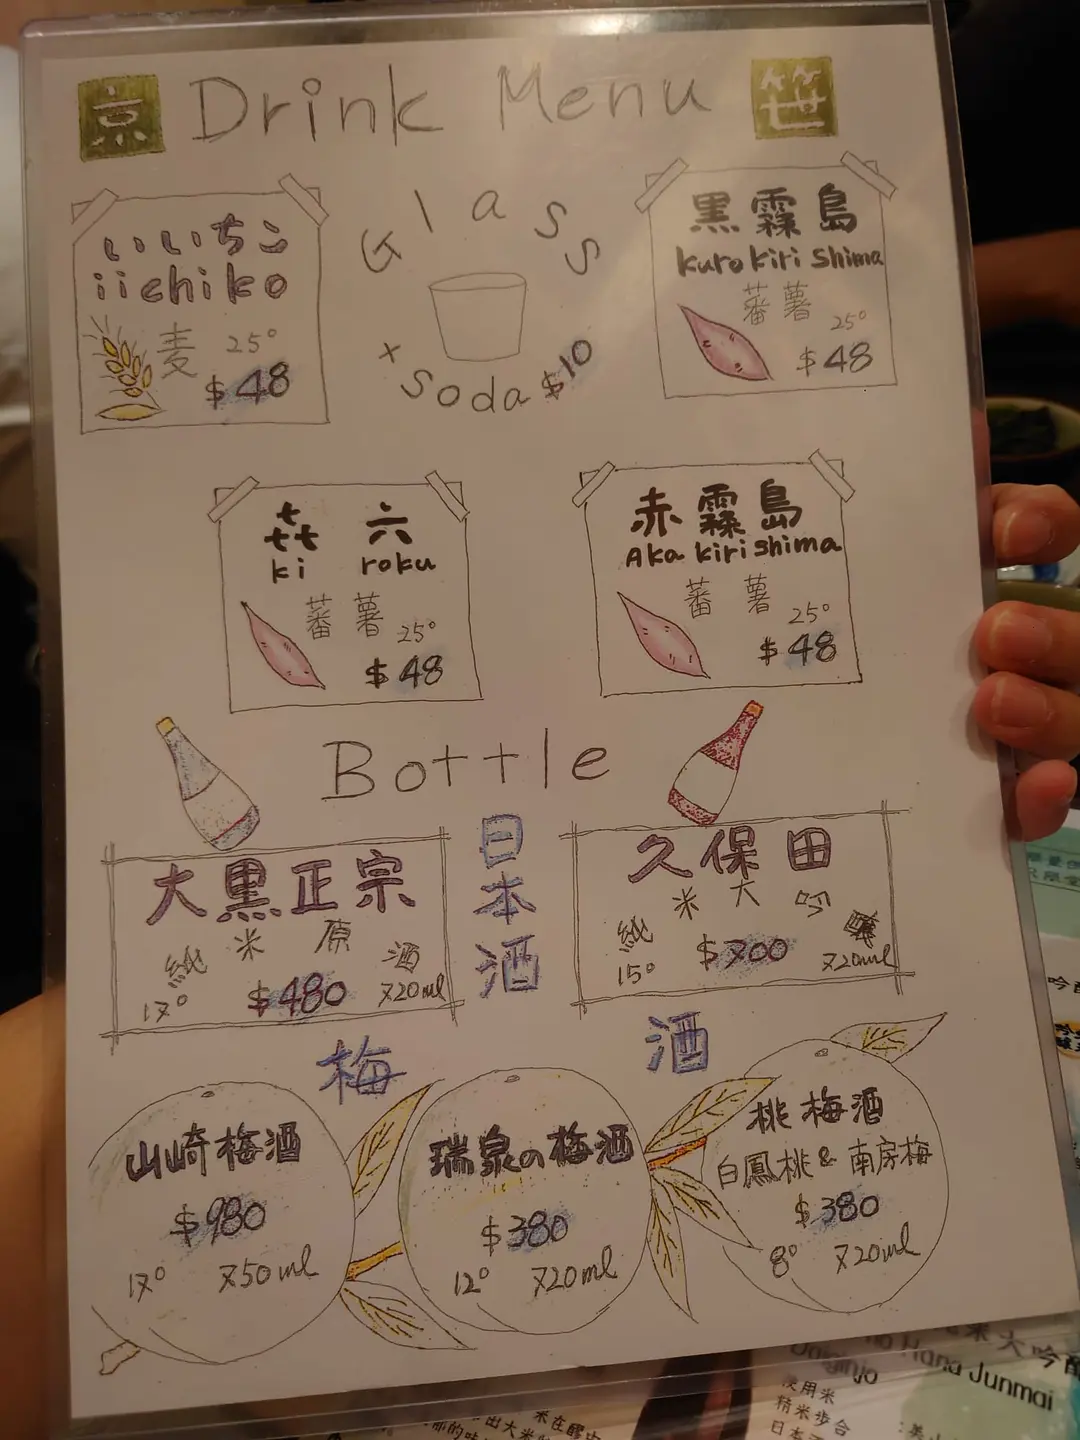 京 Drink Menu 笹
いいちこ
iichiko
麦 25°
$48
Glass
+ Soda $10
黒霧島
kuro kiri shima
蕃薯 25°
$48
㐂六
ki roku
蕃薯 25°
$48
赤霧島
Aka kiri shima
蕃薯 25°
$48
Bottle
日本酒
大黒正宗
純米原酒
17° $480 720ml
久保田
純米大吟醸
15° $700 720ml
梅酒
山崎梅酒
$980
17° 750ml
瑞泉の梅酒
$380
12° 720ml
桃梅酒
白鳳桃&南房梅
$380
8° 720ml
Hana Junmai
使用米
精米歩合